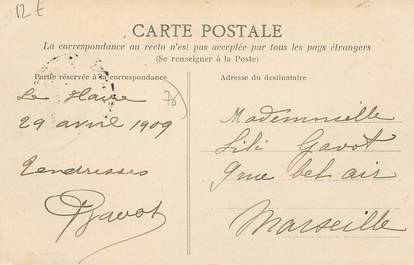 12 €
CARTE POSTALE
La correspondance au recto n'est pas acceptée par tous les pays étrangers
(Se renseigner à la Poste)
Partie réservée à la correspondance
Adresse du destinataire
Le Havre
76
29 avril 1909
Tendresses
Gavot
Mademoiselle
Lili Gavot
9 rue bel air
Marseille